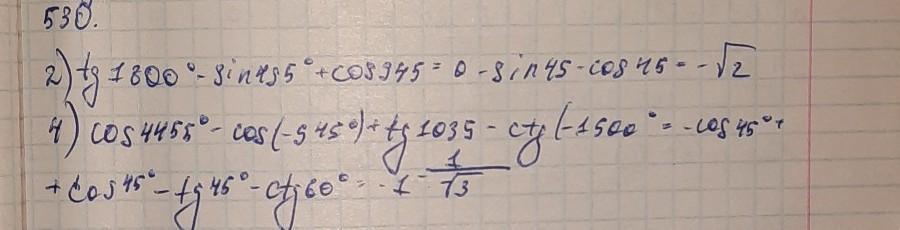 530.
2) tg 1800° - sin 495° + cos 945 = 0 - sin 45 - cos 45 = -√2
4) cos 4455° - cos(-945°) + tg 1035 - ctg(-1500° = -cos 45° +
+ cos 45° - tg 45° - ctg 60° = -1 - 1/√3